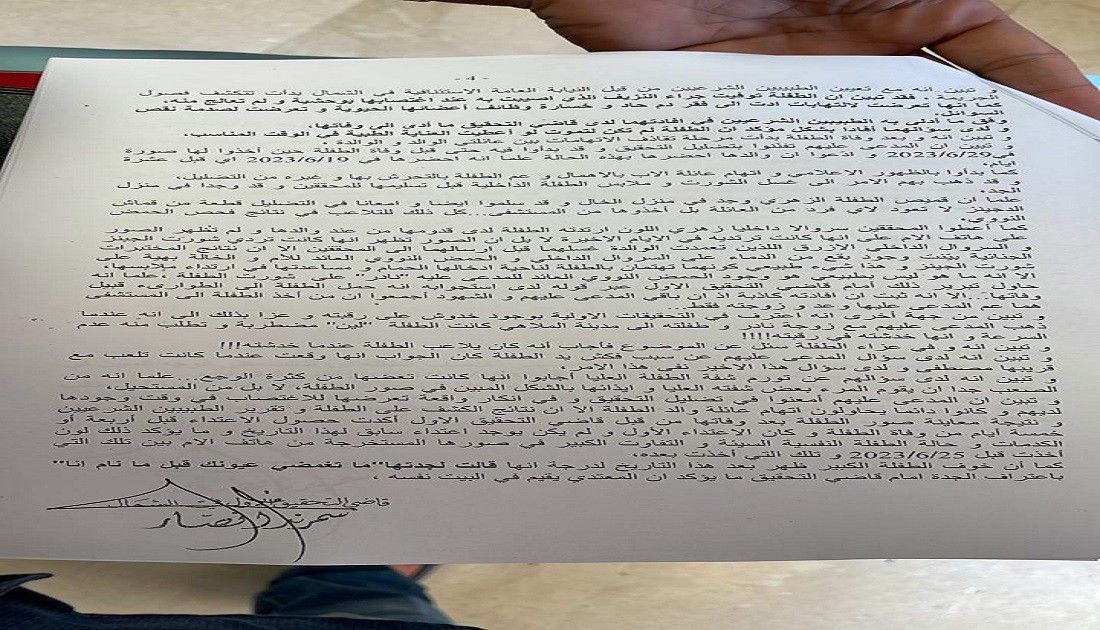 -4-
و تبين انه مع تعيين الطبيبين الشرعيين من قبل النيابة العامة الاستئنافية في الشمال بدأت تتكشف فصول
جريمتين ، فقد تبين ان الطفلة توفيت جراء النزيف الذي اصيبت به عند اغتصابها بوحشية و لم تعالج منه،
كما انها تعرضت لالتهابات ادت الى فقر دم حاد و خسارة وظائف أعضائها الحيوية و تعرضت لصدمة نقص
السوائل،
وفق ما أدلى به الطبيبين الشرعيين في افادتهما لدى قاضي التحقيق ما أدى الى وفاتها،
و لدى سؤالهما افادا بشكل مؤكد ان الطفلة لم تكن لتموت لو أعطيت العناية الطبية في الوقت المناسب،
و تبين انه بعد وفاة الطفلة بدأت مرحلة تقاذف الاتهامات بين عائلتي الوالد و الوالدة،
و تبين ان المدعى عليهم تفننوا بتضليل التحقيق و قد بدأوا فيه حتى قبل وفاة الطفلة حين أخذوا لها صورة
في 2023/6/29 و ادعوا ان والدها احضرها بهذه الحالة علما انه احضرها في 2023/6/19 اي قبل عشرة
ايام،
كما بدأوا بالظهور الاعلامي و اتهام عائلة الاب بالاهمال و عم الطفلة بالتحرش بها و غيره من التضليل،
و قد ذهب بهم الامر الى غسل الشورت و ملابس الطفلة الداخلية قبل تسليمها للمحققين و قد وجدا في منزل
الجد،
علما ان قميص الطفلة الزهري وجد في منزل الخال و قد سلموا ايضا و امعانا في التضليل قطعة من قماش
الجينز لا تعود لاي فرد من العائلة بل أخذوها من المستشفى...كل ذلك للتلاعب في نتائج فحص الحمض
النووي،
كما أعطوا المحققين سروالا داخليا زهري اللون ارتدته الطفلة لدى قدومها من عند والدها و لم تظهر الصور
على هاتف الام على انها كانت ترتديه في الايام الاخيرة لا بل ان الصور تظهر انها كانت تردي شورت الجينز
و السروال الداخلي الازرق اللذين تعمدت الوالدة غسلهما قبل ارسالهما الى المحققين الا ان نتائج المختبرات
الجنائية بيّنت وجود بقع من الدماء على السروال الداخلي و الحمض النووي العائد للام و الخالة بهية على
شورت الجينز و هذا شيء طبيعي كونهما تهتمان بالطفلة لناحية ادخالها الحمام و مساعدتها في ارتداء ملابسها،
الا انه ما هو ليس بطبيعي هو وجود الحمض النووي العائد للمدعى عليه "نادر" على شورت الطفلة ،علما انه
حاول تبرير ذلك أمام قاضي التحقيق الاول عبر قوله لدى استجوابه انه حمل الطفلة الى الطوارىء قبيل
وفاتها. الا انه ثبت ان افادته كاذبة اذ ان باقي المدعى عليهم و الشهود أجمعوا ان من أخذ الطفلة الى المستشفى
هما جد المدعى عليها وعد و زوجته فقط.
و تبين من جهة أخرى انه اعترف في التحقيقات الاولية بوجود خدوش على رقبته و عزا بذلك الى انه عندما
ذهب المدعى عليهم مع زوجة نادر و طفلته الى مدينة الملاهي كانت الطفلة "لين" مضطربة و تطلب منه عدم
السرعة و انها خدشته في رقبته!!!!
و تبين انه و في عزاء الطفلة سئل عن الموضوع فأجاب أنه كان يلاعب الطفلة عندما خدشته!!!
و تبين انه لدى سؤال المدعى عليهم عن سبب فكش يد الطفلة كان الجواب انها وقعت عندما كانت تلعب مع
قريبها مصطفى و لدى سؤال هذا الاخير نفى هذا الامر،
و تبين انه لدى سؤالهم عن تورم شفة الطفلة العليا أجابوا انها كانت تعضها من كثرة الوجع....علما انه من
الصعب جدا ان يقوم المرء بعض شفته العليا و ايذائها بالشكل المبين في صور الطفلة، لا بل من المستحيل،
و تبين ان المدعى عليهم أمعنوا في تضليل التحقيق و في انكار واقعة تعرضها للاغتصاب في وقت وجودها
لديهم و كانوا دائما يحاولون اتهام عائلة والد الطفلة الا ان نتائج الكشف على الطفلة و تقرير الطبيبين الشرعيين
و نتيجة معاينة صور الطفلة بعد وفاتها من قبل قاضي التحقيق الاول أكدت حصول الاعتداء قبل أربعة او
خمسة أيام من وفاة الطفلة و كان الاعتداء الأول و لم يكن يوجد اعتداء سابق لهذا التاريخ و ما يؤكد ذلك لون
الكدمات و حالة الطفلة النفسية السيئة و التفاوت الكبير في صورها المستخرجة من هاتف الام بين تلك التي
أخذت قبل 2023/6/25 و تلك التي أخذت بعده،
كما أن خوف الطفلة الكبير ظهر بعد هذا التاريخ لدرجة انها قالت لجدتها"ما تغمضي عيونك قبل ما نام انا"
باعتراف الجدة امام قاضي التحقيق ما يؤكد ان المعتدي يقيم في البيت نفسه ،
قاضي التحقيق الاول في الشمال
سمرندا نصّار